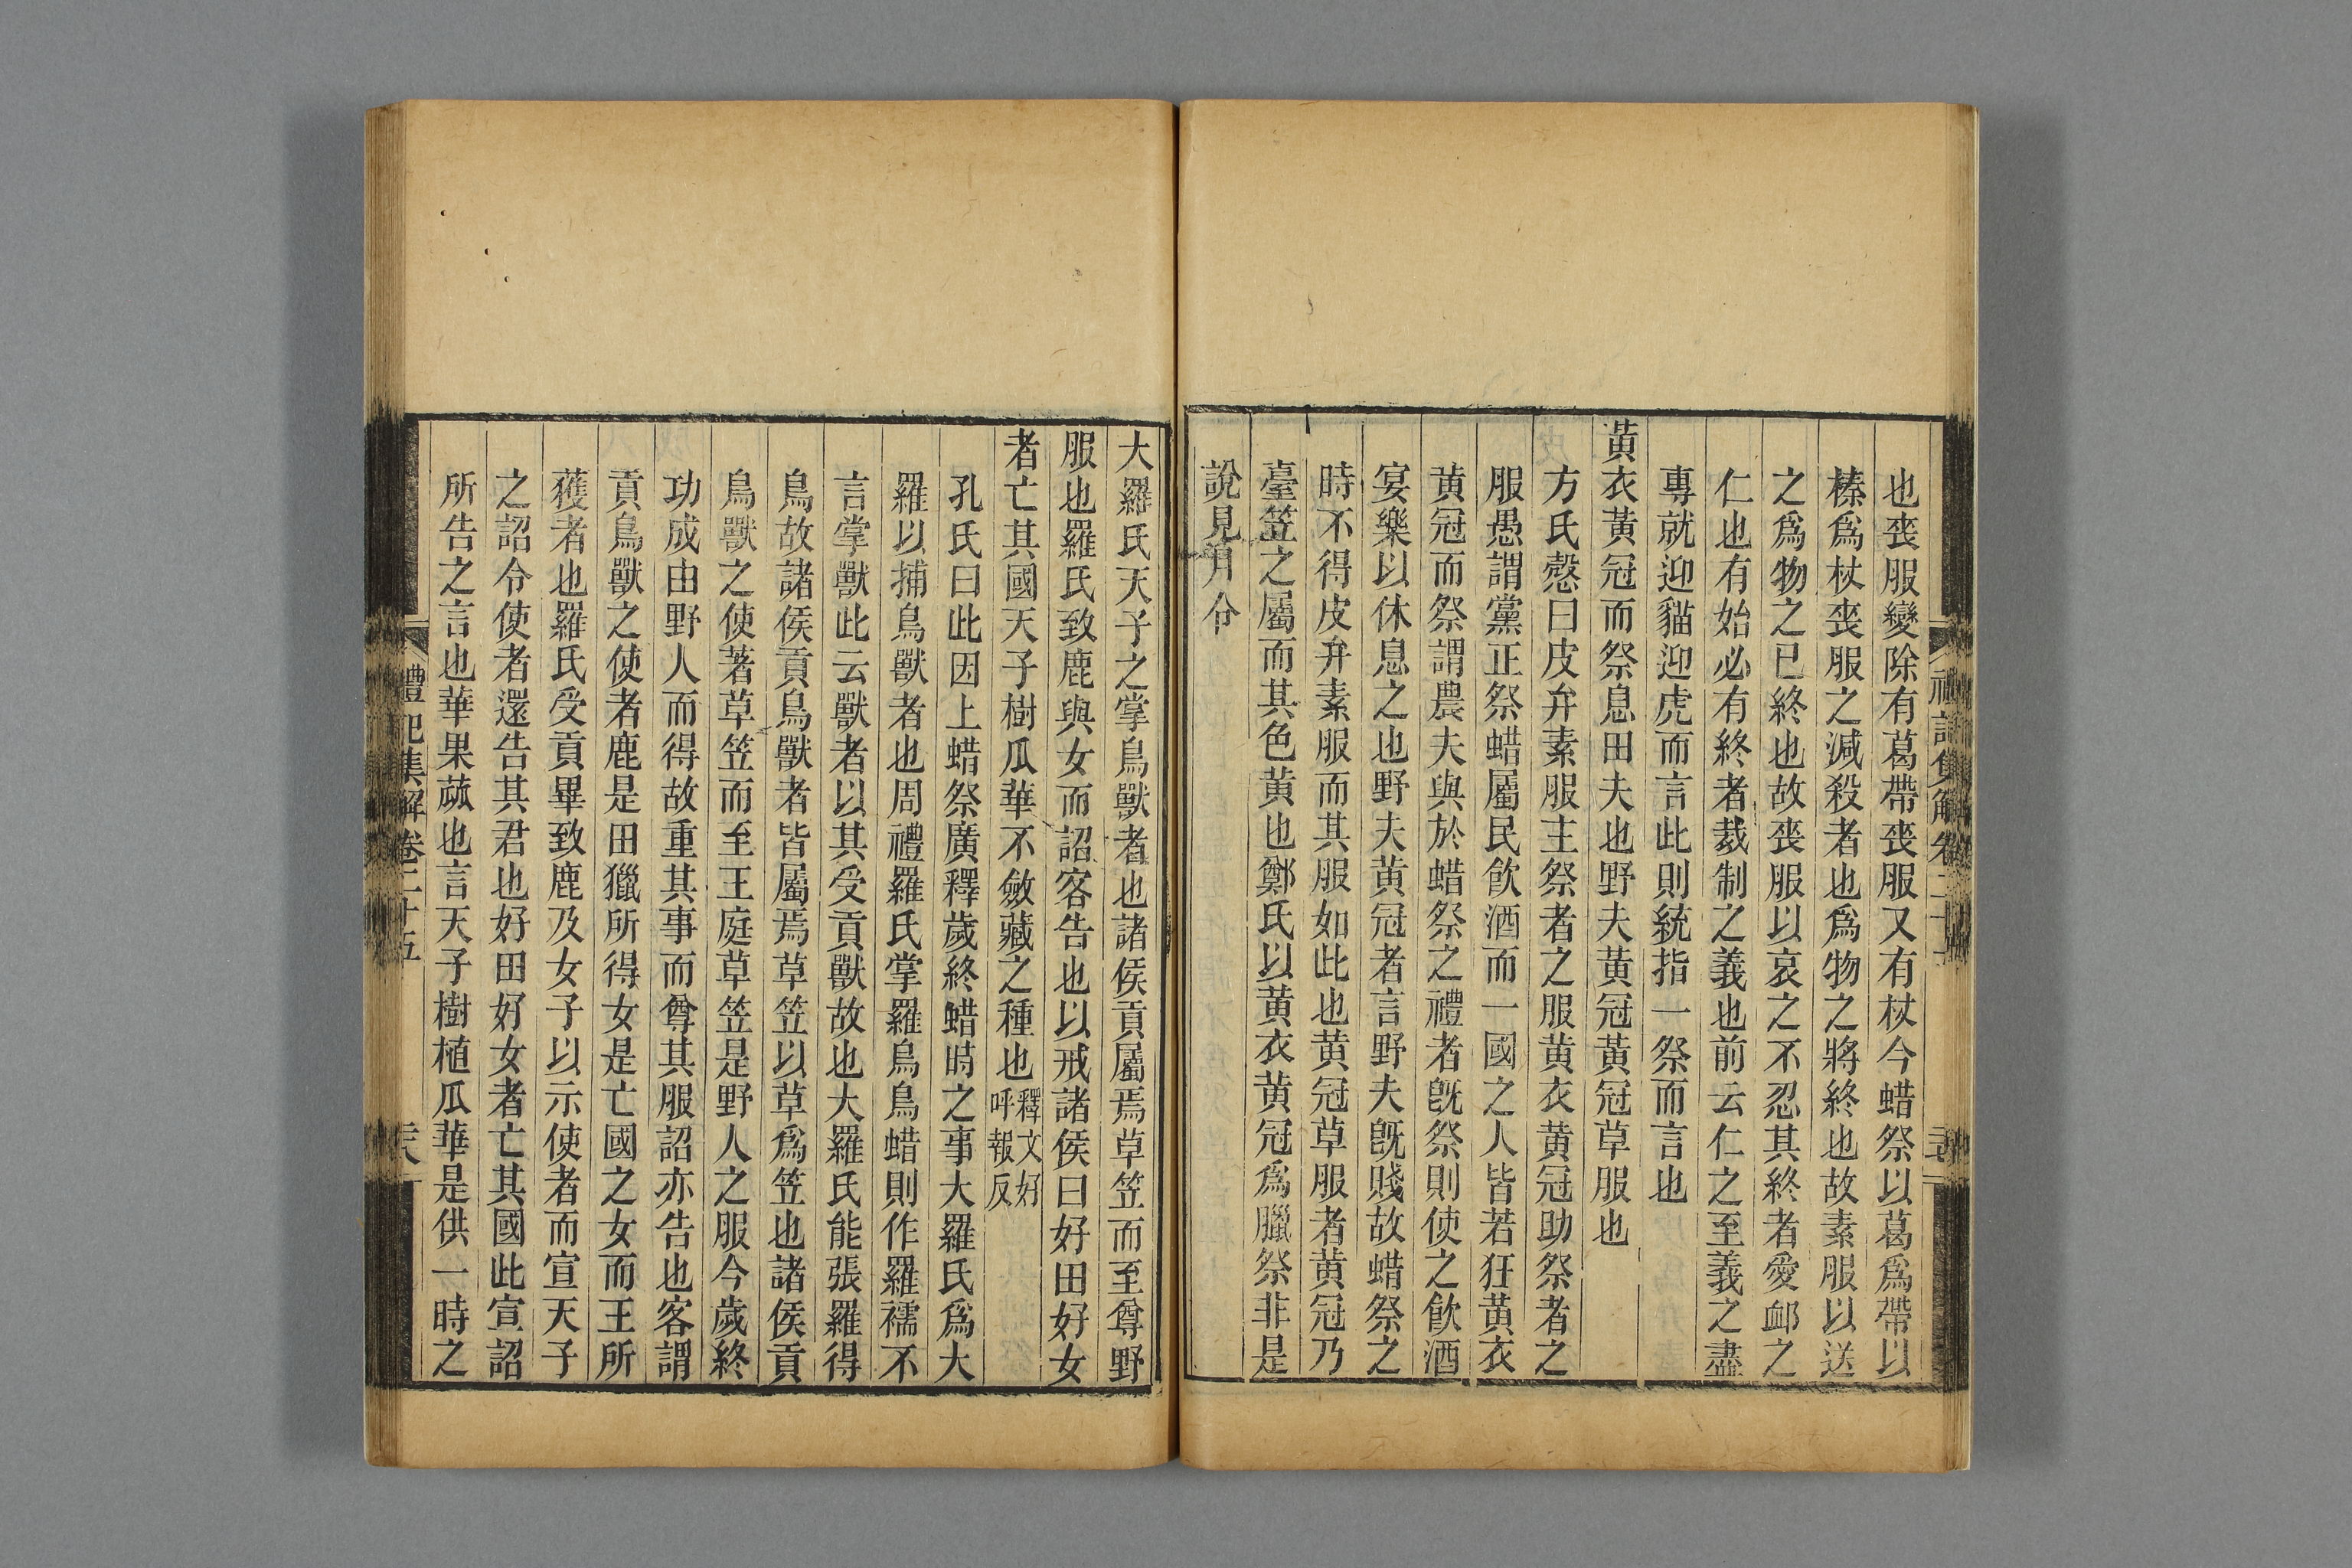 也喪服變除有葛帶喪服又有杖今蜡祭以葛爲帶以
榛爲杖喪服之減殺者也爲物之將終也故素服以送
之爲物之已終也故喪服以哀之不忍其終者愛䘏之
仁也有始必有終者裁制之義也前云仁之至義之盡
專就迎貓迎虎而言此則統指一祭而言也
黃衣黃冠而祭息田夫也野夫黃冠黃冠草服也
方氏慤曰皮弁素服主祭者之服黄衣黄冠助祭者之
服愚謂黨正祭蜡屬民飮酒而一國之人皆若狂黄衣
黄冠而祭謂農夫與於蜡祭之禮者旣祭則使之飮酒
宴樂以休息之也野夫黄冠者言野夫旣賤故蜡祭之
時不得皮弁素服而其服如此也黄冠草服者黄冠乃
臺笠之屬而其色黄也鄭氏以黄衣黄冠爲臘祭非是
說見月令
大羅氏天子之掌鳥獸者也諸侯貢屬焉草笠而至尊野
服也羅氏致鹿與女而詔客告也以戒諸侯曰好田好女
者亡其國天子樹瓜華不斂藏之種也釋文好
呼報反
孔氏曰此因上蜡祭廣釋歲終蜡時之事大羅氏爲大
羅以捕鳥獸者也周禮羅氏掌羅烏鳥蜡則作羅襦不
言掌獸此云獸者以其受貢獸故也大羅氏能張羅得
鳥故諸侯貢鳥獸者皆屬焉草笠以草爲笠也諸侯貢
鳥獸之使著草笠而至王庭草笠是野人之服今歲終
功成由野人而得故重其事而尊其服詔亦告也客謂
貢鳥獸之使者鹿是田獵所得女是亡國之女而王所
獲者也羅氏受貢畢致鹿及女子以示使者而宣天子
之詔令使者還告其君也好田好女者亡其國此宣詔
所告之言也華果蓏也言天子樹植瓜華是供一時之
禮記集解卷二十五